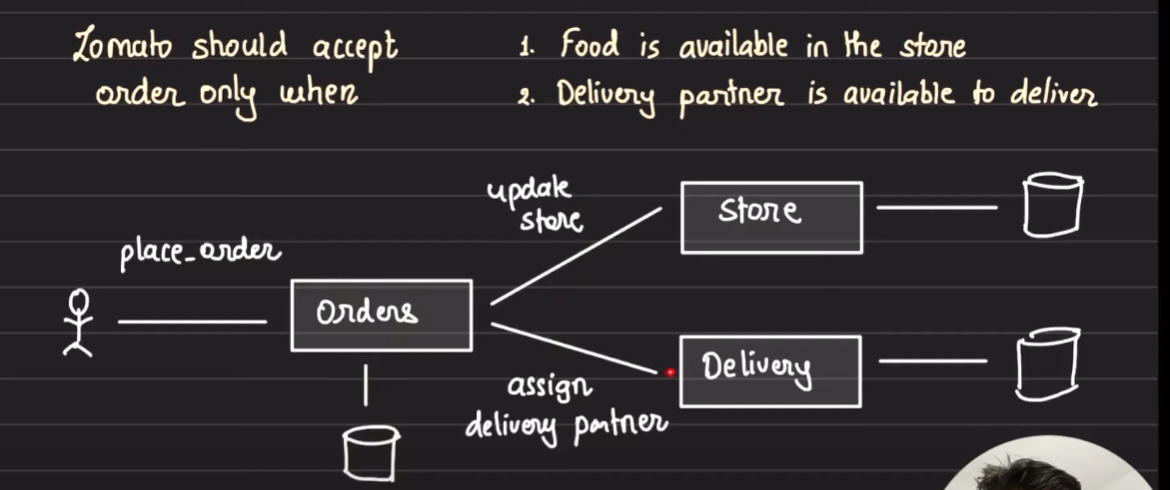 Zomato should accept
order only when
1. Food is available in the store
2. Delivery partner is available to deliver
update
store
Store
place_order
Orders
Delivery
assign
delivery partner